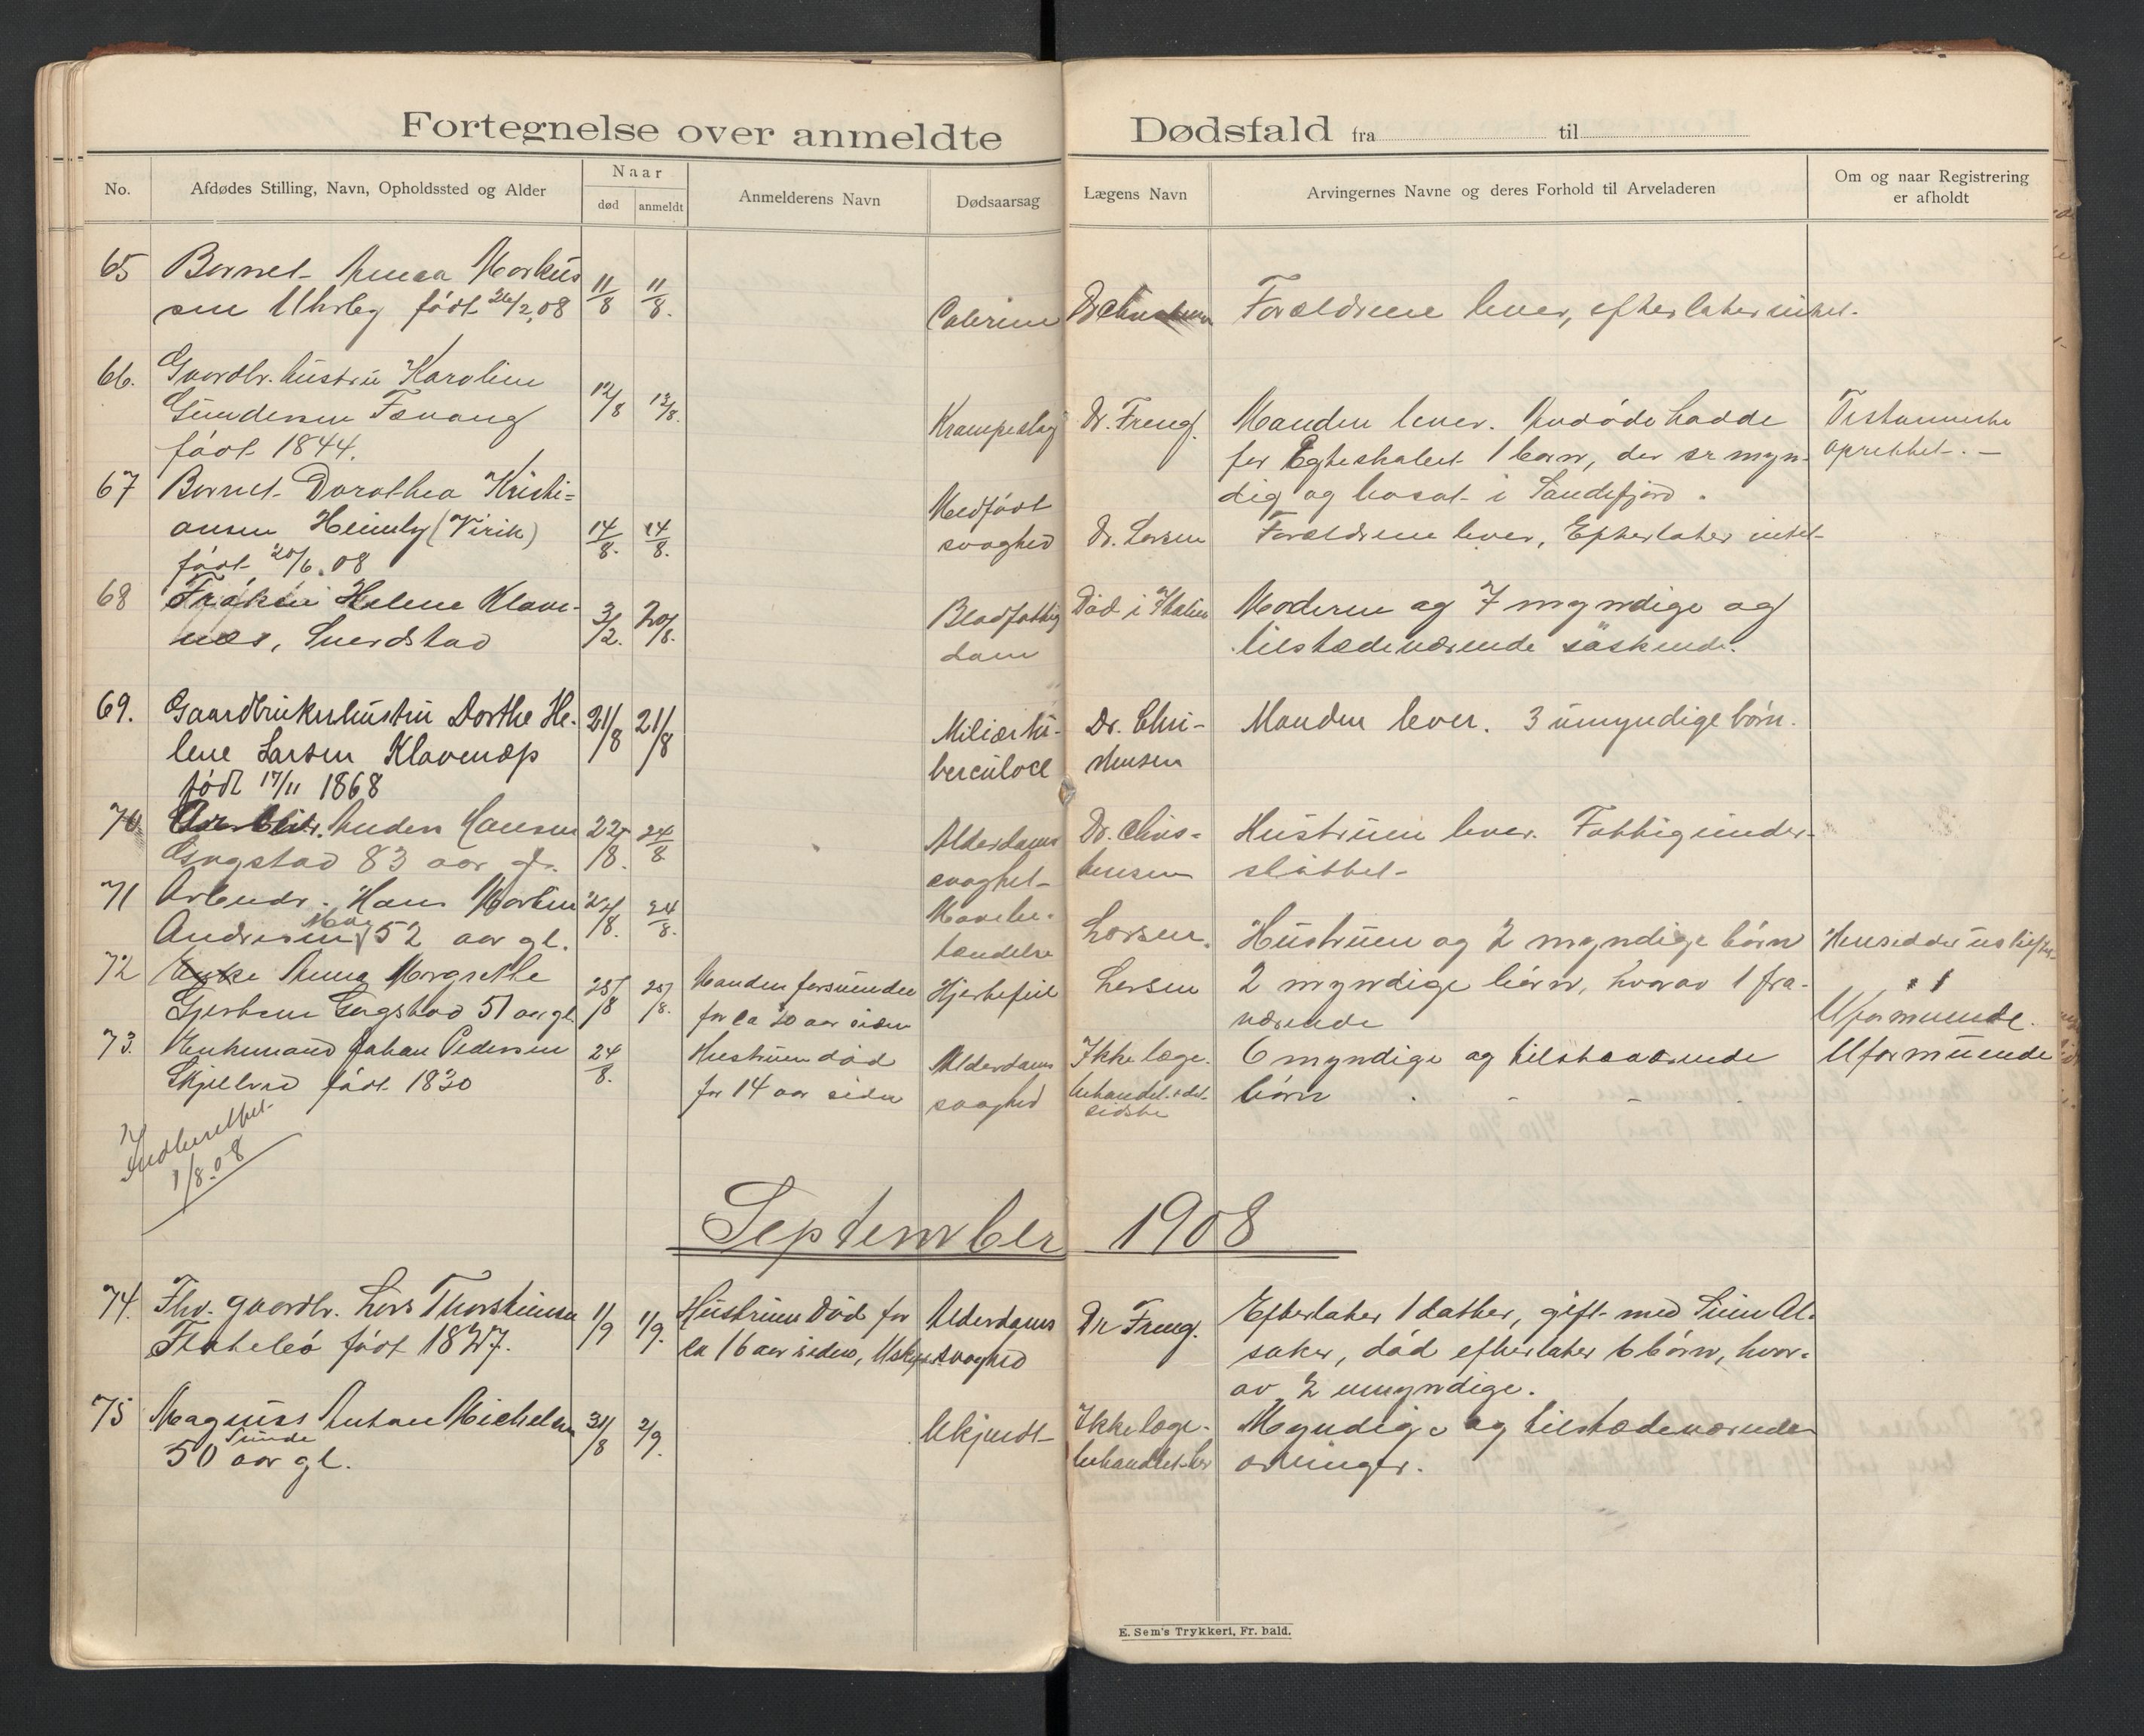 Fortegnelse over anmeldte Dødsfald fra til
No.
Afdødes Stilling, Navn, Opholdssted og Alder
Naar
død
anmeldt
Anmelderens Navn
Dødsaarsag
Lægens Navn
Arvingernes Navne og deres Forhold til Arveladeren
Om og naar Registrering
er afholdt
65 Barnet Anna Markus
sen født 26/2.08
11/8 11/8.
Colerine
Forældrene lever, efterlater intet.
66. Gaardbr. hustru Karoline
Gundersen Tævang
født 1844.
12/8 13/8.
Krampeslag
Dr. Freng.
Manden lever. Avdøde hadde
før Egteskabet 1 barn, der er myn-
dig og bosat i Sandefjord.
Testamente
oprettet. –
67 Barnet Dorothea Kristi=
ansen Heimly (Virik)
født 20/6.08
14/8. 14/8.
Medfødt
svaghed
Dr. Larsen
Forældrene lever, Efterlater intet
68 Frøken Helene Klave-
næs,
3/2. 20/8.
Blodfattig
dom
Død i Italien
Moderen og 7 myndige og
tilstedeværende søskende.
69. Gaardbrukerhustru Dorthe He-
lene Larsen Klavenæs
født 17/11 1868
21/8 21/8
Miliærtu-
berculose
Dr. Chri-
stensen
Manden lever. 3 umyndige børn.
70. Arbeidr. Anders Hansen
Gogstad 83 aar gl.
22/8. 24/8
Alderdoms
svaghet
Dr. Chris-
tensen
Hustruen lever. Fattigunder-
støttet
71 Arbeidr. Hans Martin
Andresen 52 aar gl.
22/8. 24/8.
Mavebe-
tændelse
Larsen.
Hustruen og 2 myndige børn
Hensidder i uskifte
72 Enke Anna Margrethe
Gjertsen Gogstad 51 aar gl.
25/8 25/8.
Manden forsvunden
for ca 20 aar siden
Hjertefeil
Larsen
2 myndige børn, hvorav 1 fra-
værende
Uformuende.
73. Enkemand Johan Pedersen
Skjelvad født 1830
24/8.
Hustruen død
for 14 aar siden
Alderdoms
svaghed
Ikke læge-
behandlet i det
sidste
6 myndige og tilstedeværende
børn
Uformuende
Indberettet
1/8.08
September 1908
74. Fhv. gaardbr. Lars Thorstensen
født 1827.
1/9 1/9.
Hustruen død for
ca 16 aar siden,
Alderdoms
svaghed
Dr Freng.
Efterlater 1 datter, gift med
saker, død efterlater 6 børn, hvor-
av 2 umyndige.
75 Magnus Anton Michelsen
Sunde
50 aar gl.
31/8 2/9.
Ukjendt
Ikke læge-
behandlet her
Myndige og tilstedeværende
arvinger.
E. Sem's Trykkeri, Fr. hald.